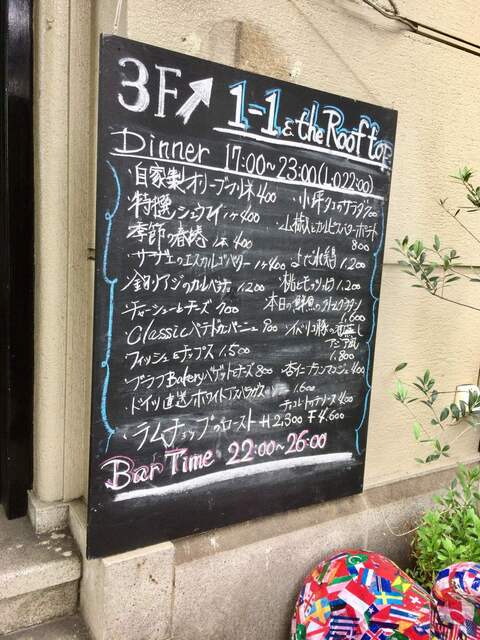 3F 1-1 & the Rooftop
Dinner 17:00~23:00(L.O 22:00)
・自家製オリーブマリネ 400
・特撰シュウマイ 1ケ 400
季節の春捲 1本 400
・サザエのエスカルゴバター 1ケ 400
・釣りアジのカルパッチョ 1200
・チャーシューとチーズ 700
・Classicパテドカンパーニュ 900
フィッシュ&チップス 1.500
・ブラフBakeryバゲットとチーズ 800
・ドイツ直送ホワイトアスパラガス 1.600
・ラムチョップのロースト H 2,300 F 4,600
・小坪タコのサラダ
・山椒とカルピスバターポテト
800
よだれ鶏 1,200
・桃とモッツァレラ 1.200
本日の鮮魚のアクアパッツァ
1,600
・イベリコ豚の
アジア風
1.800
・杏仁ブランマンジェ 400
チョコレートテリーヌ 400
Bar Time 22:00~26:00